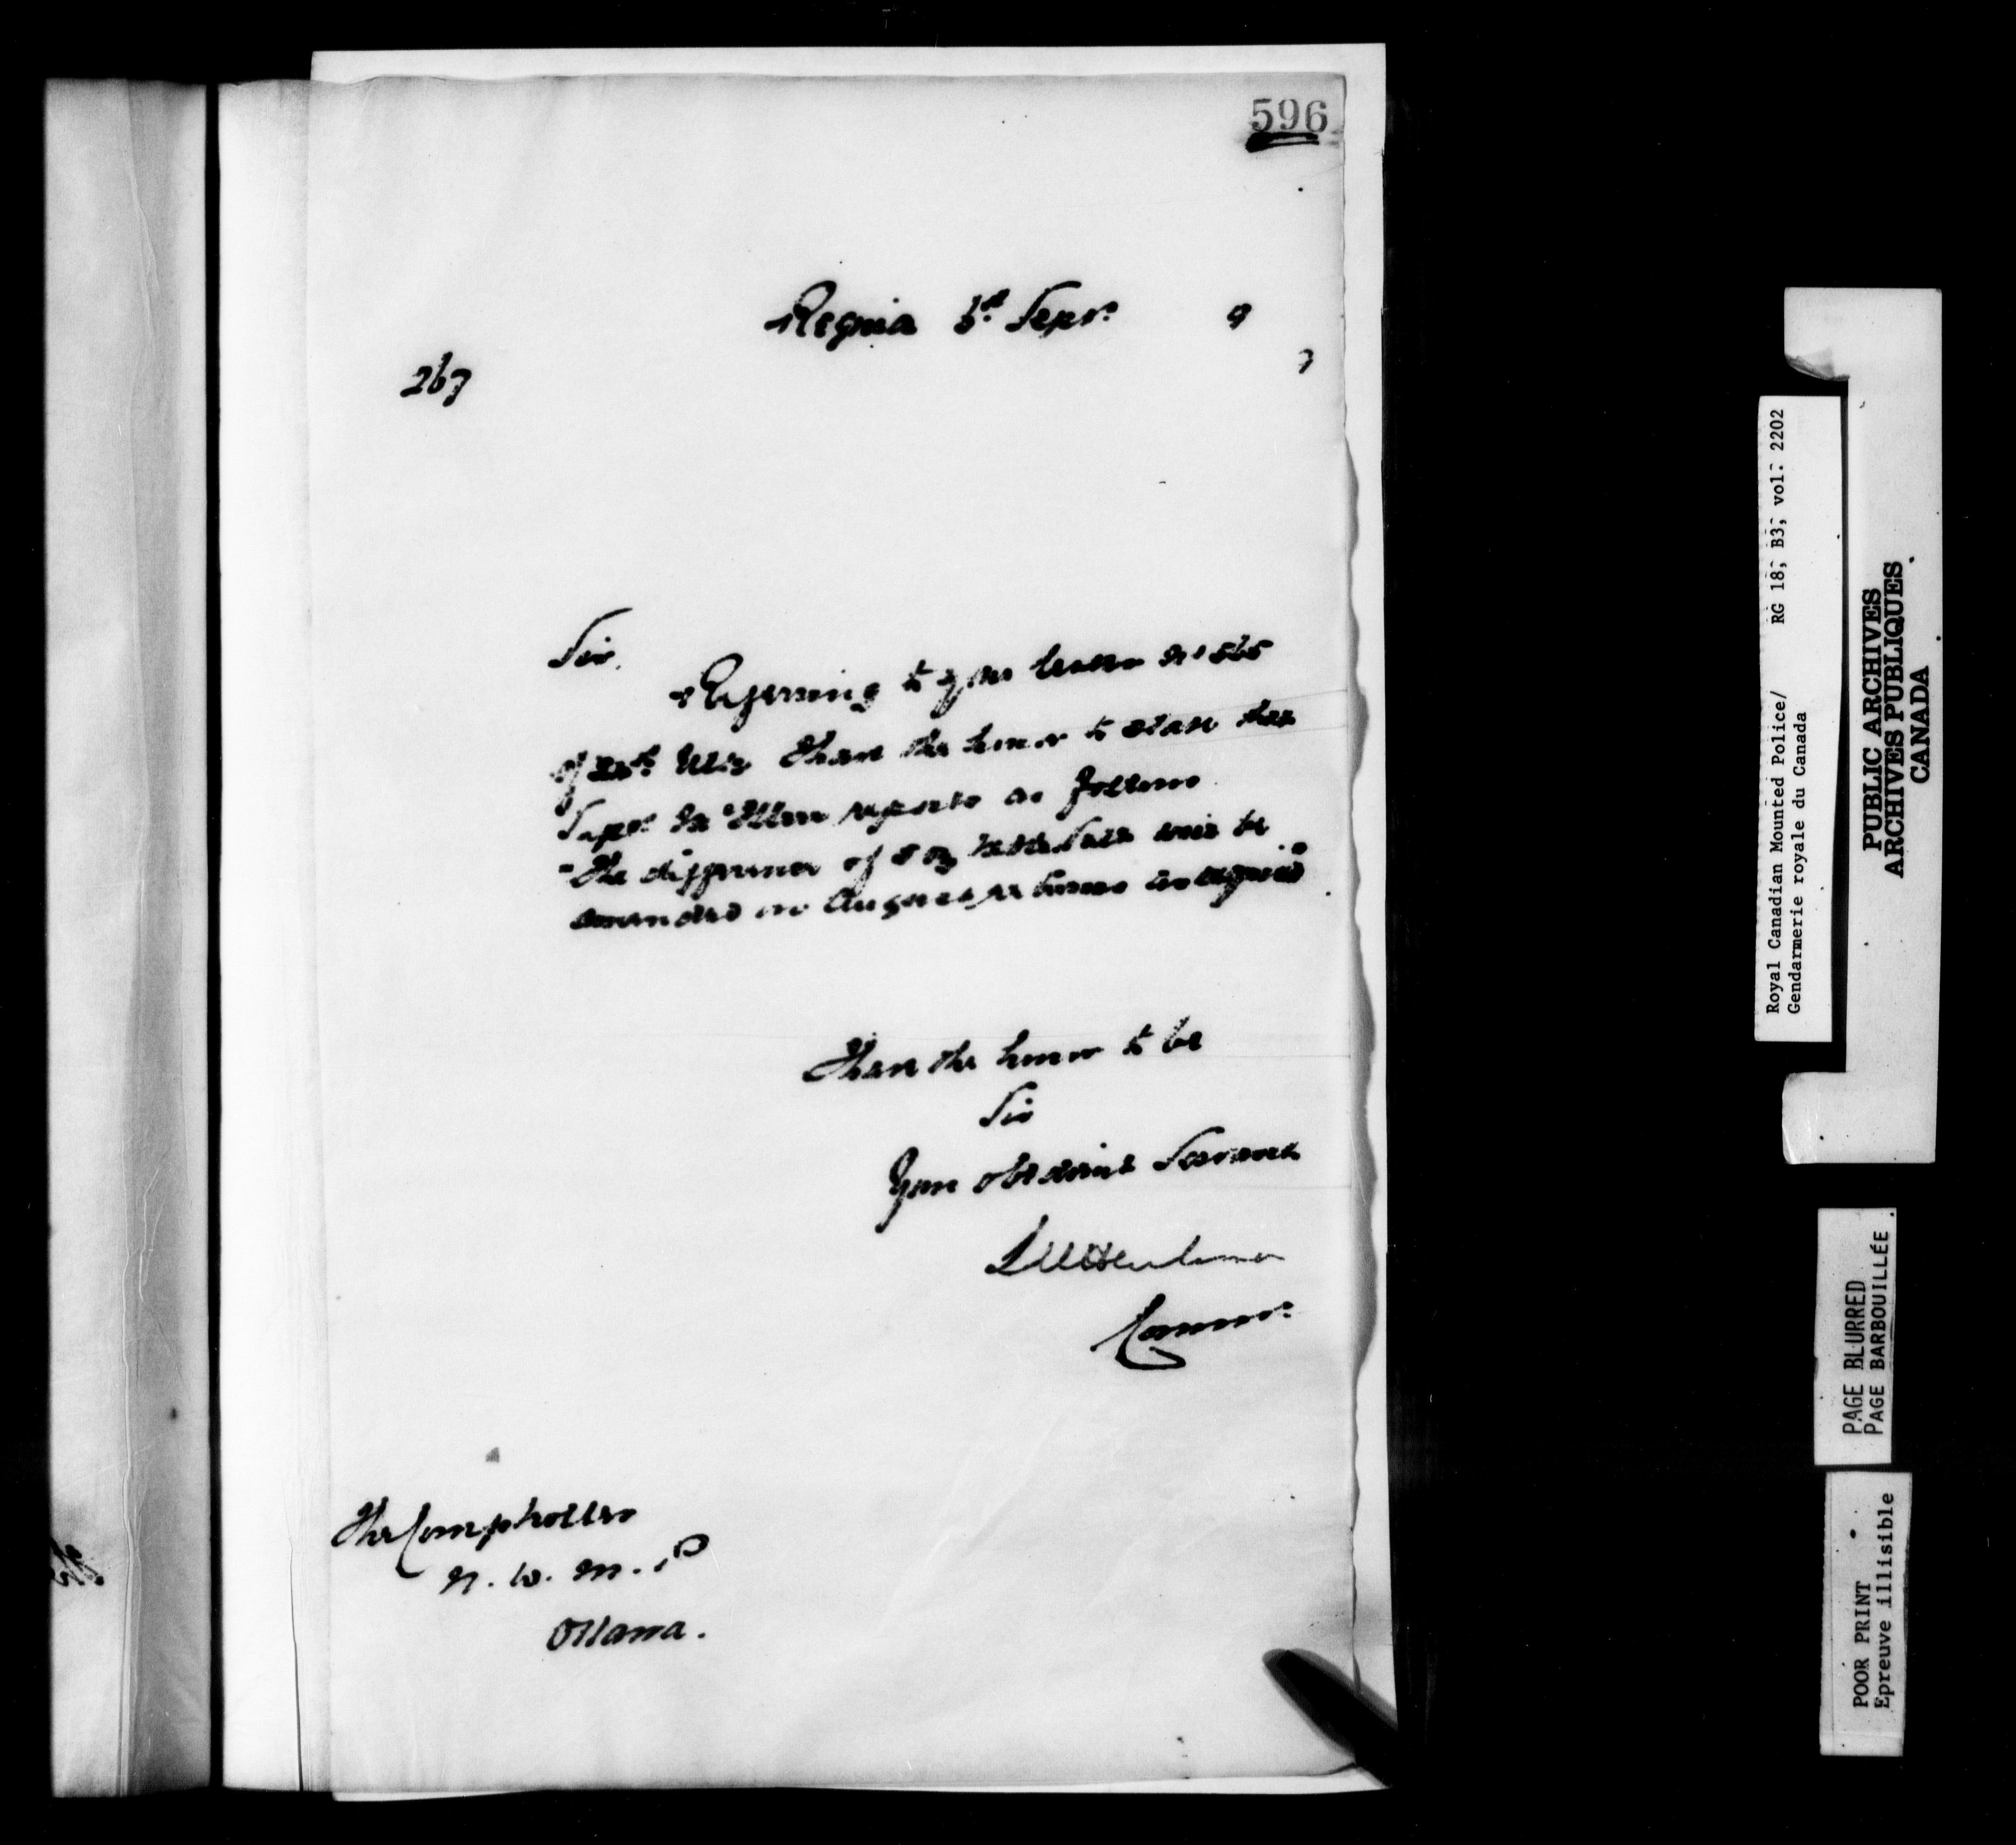 596
Regina 3rd Sepr. 9
267
Sir,
Referring to your letter No 565
of Ult. I have the honor to state that
Supt. reports as follows
"The difference of 5 oz will be
amended in August returns as required"
I have the honor to be
Sir
Your obedient Servant
Commr.
The Comptroller
N. W. M. P
Ottawa.
Royal Canadian Mounted Police/ RG 18, B3, vol. 2202
Gendarmerie royale du Canada
PUBLIC ARCHIVES
ARCHIVES PUBLIQUES
CANADA
PAGE BLURRED
PAGE BARBOUILLÉE
POOR PRINT
Epreuve illisible